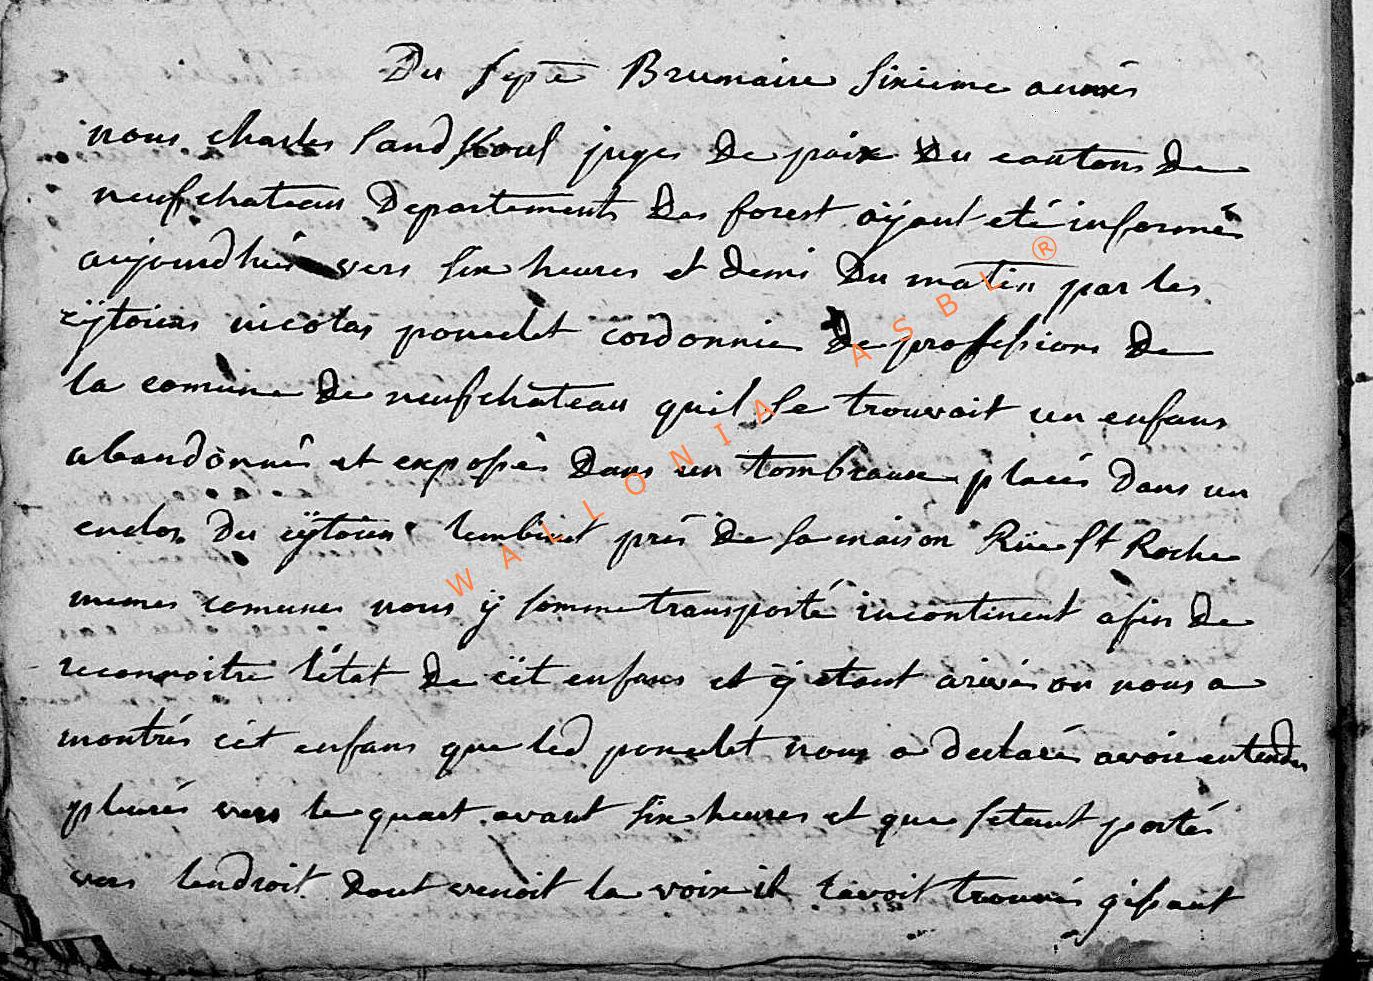 Du sept Brumaire sixieme année
nous charles juges De paix Du cantons De
neufchateau Departements Des forest aÿant eté informés
aujourdhuis vers six heures et demi Du matin par les
cÿtoiens nicolas poncelet cordonnie De professions De
la comune De neufchateau quil se trouvoit un enfans
abandonnés et exposés Dans un tombraux placés dans un
enclos Du cÿtoien prés De sa maison Rüe St Roche
memes comunes nous ÿ somme transporté incontinent afin De
reconnoitre l'état De cèt enfans et ÿ etant arivés on nous a
montrés cét enfans que led poncelet nous a declarés avoir entendu
plurés vers le quart avant six heures et que setant portés
vers lendroit Dont venoit la voix il lavoit trouvés gissant
WALLONIA ASBL ®